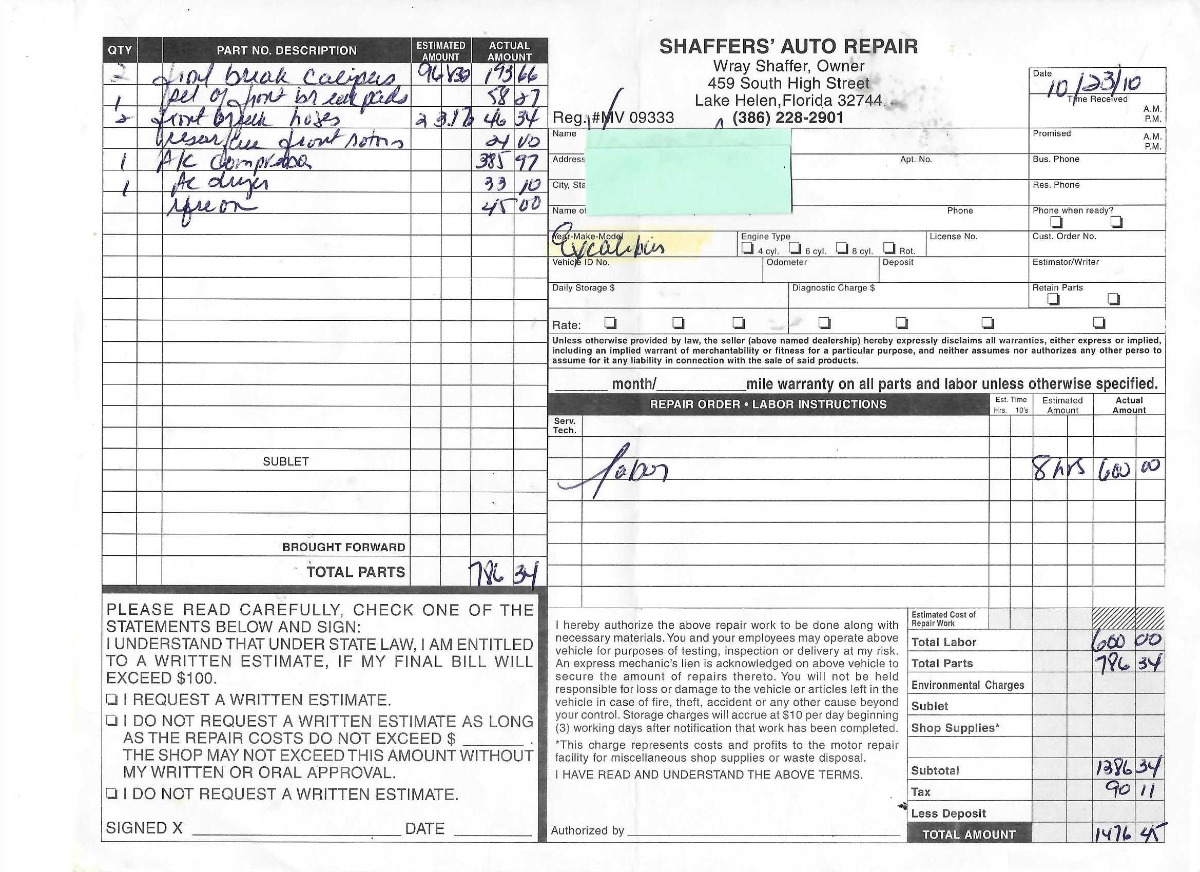 QTY PART NO. DESCRIPTION ESTIMATED AMOUNT ACTUAL AMOUNT
2 front break calipers 96 83 193 66
1 set of front break pads 58 27
2 front break hoses 23 17 46 34
front rotors 24 00
1 A/C Compressor 385 97
1 Ac dryer 33 10
freon 45 00
SUBLET
BROUGHT FORWARD
TOTAL PARTS 786 34
PLEASE READ CAREFULLY, CHECK ONE OF THE
STATEMENTS BELOW AND SIGN:
I UNDERSTAND THAT UNDER STATE LAW, I AM ENTITLED
TO A WRITTEN ESTIMATE, IF MY FINAL BILL WILL
EXCEED $100.
I REQUEST A WRITTEN ESTIMATE.
I DO NOT REQUEST A WRITTEN ESTIMATE AS LONG
AS THE REPAIR COSTS DO NOT EXCEED $ ______ .
THE SHOP MAY NOT EXCEED THIS AMOUNT WITHOUT
MY WRITTEN OR ORAL APPROVAL.
I DO NOT REQUEST A WRITTEN ESTIMATE.
SIGNED X ______ DATE ______
SHAFFERS' AUTO REPAIR
Wray Shaffer, Owner
459 South High Street
Lake Helen,Florida 32744
Reg.#MV 09333 (386) 228-2901
Date
10/23/10
Time Received A.M.
P.M.
Name
Promised A.M.
P.M.
Address Apt. No. Bus. Phone
City, Sta Res. Phone
Name of Phone Phone when ready?
Year-Make-Model Engine Type License No. Cust. Order No.
Excalibur 4 cyl. 6 cyl. 8 cyl. Rot.
Vehicle ID No. Odometer Deposit Estimator/Writer
Daily Storage $ Diagnostic Charge $ Retain Parts
Rate:
Unless otherwise provided by law, the seller (above named dealership) hereby expressly disclaims all warranties, either express or implied,
including an implied warrant of merchantability or fitness for a particular purpose, and neither assumes nor authorizes any other perso to
assume for it any liability in connection with the sale of said products.
______ month/______mile warranty on all parts and labor unless otherwise specified.
REPAIR ORDER • LABOR INSTRUCTIONS Est. Time Hrs. 10's Estimated Amount Actual Amount
Serv.
Tech.
labor 8 hrs 600 00
I hereby authorize the above repair work to be done along with
necessary materials. You and your employees may operate above
vehicle for purposes of testing, inspection or delivery at my risk.
An express mechanic's lien is acknowledged on above vehicle to
secure the amount of repairs thereto. You will not be held
responsible for loss or damage to the vehicle or articles left in the
vehicle in case of fire, theft, accident or any other cause beyond
your control. Storage charges will accrue at $10 per day beginning
(3) working days after notification that work has been completed.
*This charge represents costs and profits to the motor repair
facility for miscellaneous shop supplies or waste disposal.
I HAVE READ AND UNDERSTAND THE ABOVE TERMS.
Authorized by ______
Estimated Cost of
Repair Work
Total Labor 600 00
Total Parts 786 34
Environmental Charges
Sublet
Shop Supplies*
Subtotal 1386 34
Tax 90 11
Less Deposit
TOTAL AMOUNT 1476 45